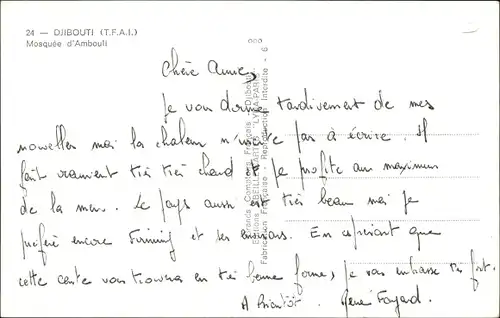 24 — DJIBOUTI (T.F.A.I.)
Mosquée d'Ambouli
Chère Annie,
Je vous donne tardivement de mes
nouvelles mais la chaleur n'incite pas à écrire. Il
fait vraiment très très chaud et je profite au maximum
de la mer. Le pays aussi est très beau mais je
préfère encore Firminy et ses environs. En espérant que
cette carte vous trouvera en très bonne forme, je vous embrasse très fort.
A Bientôt. René Fayard.
Reproduction Interdite - 6